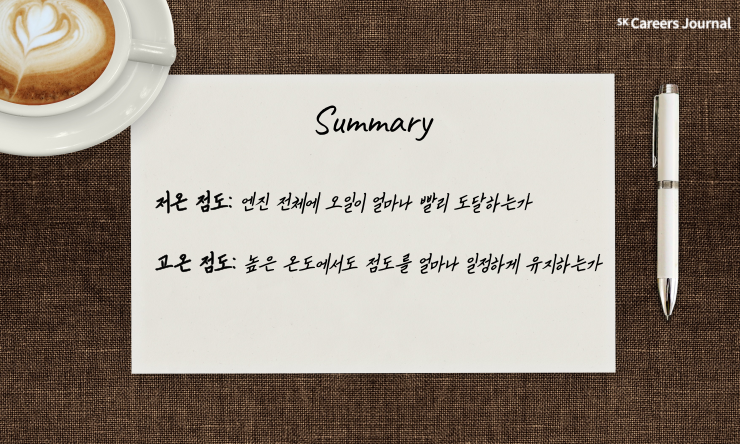 SK Careers Journal
Summary
저온 점도: 엔진 전체에 오일이 얼마나 빨리 도달하는가
고온 점도: 높은 온도에서도 점도를 얼마나 일정하게 유지하는가